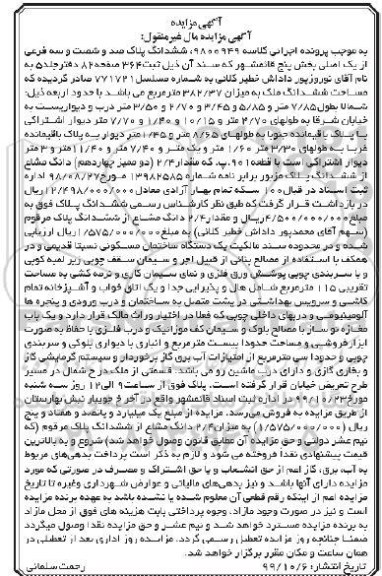 آگهی مزایده
آگهی مزایده مال غیرمنقول:
به موجب پرونده اجرائی کلاسه ۹۸۰۰۹۴۹، ششدانگ پلاک صد و شصت و سه فرعی
از یک اصلی بخش پنج قائمشهر که سند آن ذیل ثبت۳۶۴ صفحه۸۲ دفترجلد۵ به
نام آقای نوروزپور داداش خطیر کلائی به شماره مسلسل۷۷۱۷۲۱ صادر گردیده که
مساحت ششدانگ ملک به میزان ۳۸۲/۳۷ مترمربع می باشد با حدود اربعه ذیل:
شمالا بطول۷/۸۵ متر و ۵/۸۵ و ۳/۴۵ و ۲/۷۰ و ۳/۵۰ متر درب و دیواریست به
خیابان شرقا به طولهای ۴/۷۰ متر و ۱۰/۱۵ و ۱/۴۰ و ۷/۷۰ متر دیوار اشتراکی
با پلاک باقیمانده جنوبا به طولهای ۸/۶۵ متر و ۱/۴۵متر دیوار به پلاک باقیمانده
غربا به طولهای ۳/۳۰ متر ۱/۶۰ متر و یک متر و ۷/۴۰ متر و ۱۱/۴۰متر و ۳ متر
دیوار اشتراکی است با قطعه۹۰۱.پ. که مقدار۲/۴ (دو ممیز چهاردهم) دانگ مشاع
از ششدانگ پلاک مزبور برابر نامه شماره ۱۳۹۸۲۵۸۵ مورخ۹۸/۰۸/۲۷ اداره
ثبت اسناد در قبال۱۰۰ سکه تمام بهار آزادی معادل۱۲/۴۹۸/۰۰۰/۰۰۰ریال
در بازداشت قرار گرفت که طبق نظر کارشناس رسمی ششدانگ پلاک فوق به
مبلغ۴/۵۰۰/۰۰۰/۰۰۰ریال و مقدار۲/۴ دانگ مشاع از ششدانگ پلاک مرقوم
(سهم آقای محمدپور داداش خطیر کلائی) به مبلغ۱/۵۷۵/۰۰۰/۰۰۰ریال ارزیابی
شده و در محدوده سند مالکیت یک دستگاه ساختمان مسکونی نسبتا قدیمی و در
همکف با استفاده از مصالح بنائی از قبیل آجر و سیمان سقف چوبی زیر لمبه کوبی
و با سربندی چوبی پوشش ورق فلزی و نمای سیمان کاری و نرده کشی به مساحت
تقریبی ۱۱۵ مترمربع شامل هال و پذیرایی جدا و یک اتاق خواب و آشپزخانه تمام
کاشی و سرویس بهداشتی در پشت متصل به ساختمان و درب ورودی و پنجره ها
آلومینیومی و دربهای داخلی چوبی که فعلا در اختیار وراث مالک قرار دارد و یک باب
مغازه نوساز با مصالح بلوک و سیمان کف موزائیک و درب فلزی با حفاظ به صورت
ابزار فروشی و مساحت حدودا بیست مترمربع و انباری با دیواری بلوکی و سربندی
چوبی و حدودا سی مترمربع از امتیازات آب برق گاز برخوردار و سیستم گرمایشی گاز
و بخاری گازی و دارای درب ماشین رو می باشد. قسمتی از ملک در ح شمال در مسیر
طرح تعریض خیابان قرار گرفته است. پلاک فوق از ساعت۹ الی۱۲ روز سه شنبه
مورخ۹۹/۱۰/۲۳ در اداره ثبت اسناد قائمشهر واقع در آخر خ جویبار نبش بهارستان
از طریق مزایده به فروش می‌رسد. مزایده از مبلغ یک میلیارد و پانصد و هفتاد و پنج
ریال (۱/۵۷۵/۰۰۰/۰۰۰) به میزان۲/۴ دانگ مشاع از ششدانگ پلاک مرقوم (که
نیم عشر دولتی و حق مزایده آن مطابق قانون وصول خواهد شد) شروع و به بالاترین
قیمت پیشنهادی نقدا فروخته می شود و لازم به ذکر است پرداخت بدهی‌های مربوط
به آب، برق، گاز اعم از حق انشعاب و یا حق اشتراک و مصرف در صورتی که مورد
مزایده دارای آنها باشد و نیز بدهی‌های مالیاتی و عوارض شهرداری وغیره تا تاریخ
مزایده اعم از اینکه رقم قطعی آن معلوم شده یا نشده باشد به عهده برنده مزایده
است و نیز در صورت وجود مازاد، وجوه پرداختی بابت هزینه های فوق از محل مازاد
به برنده مزایده مسترد خواهد شد و نیم عشر و حق مزایده نقدا وصول میگردد
ضمنا چنانچه روز مزایده تعطیل رسمی گردد، مزایده روز اداری بعد از تعطیلی در
همان ساعت و مکان مقرر برگزار خواهد شد.
تاریخ انتشار: ۹۹/۱۰/۶
رحمت سلمانی